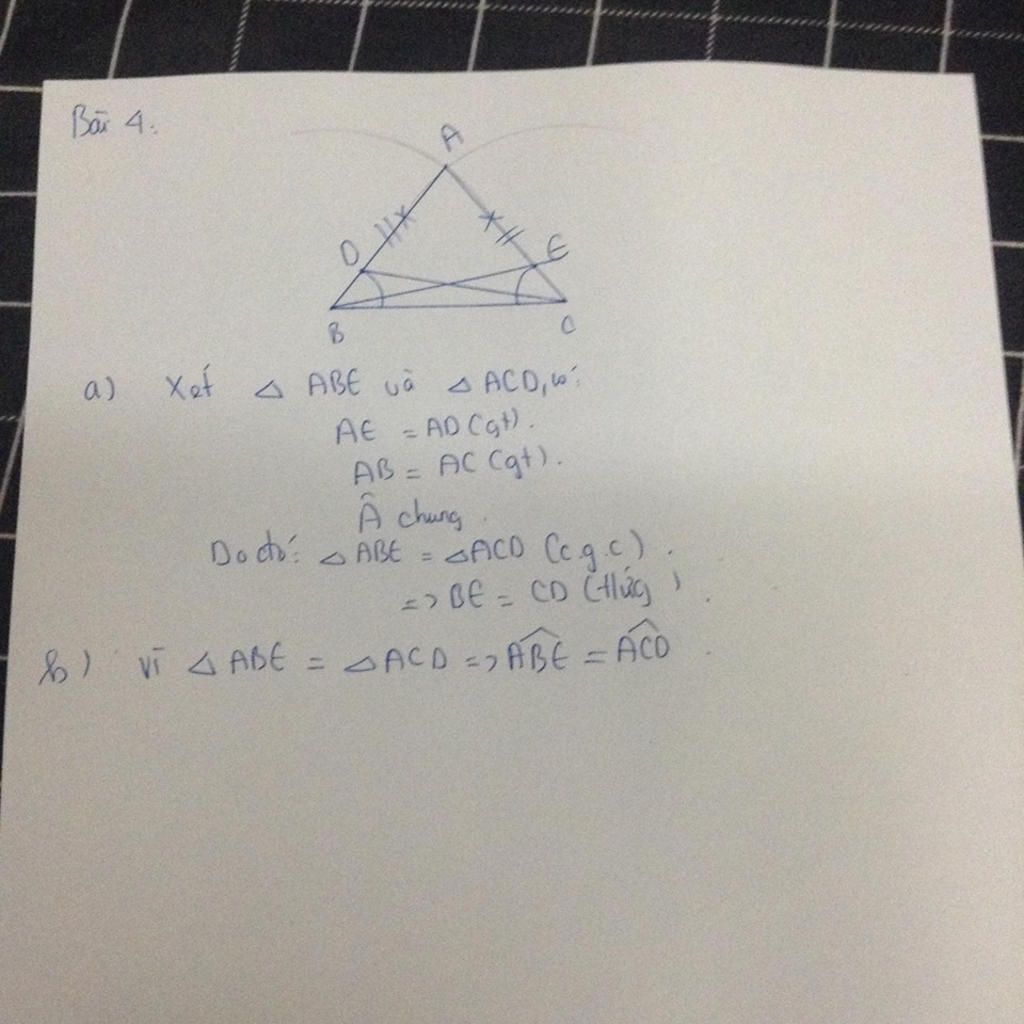 Bài 4.
A
D
E
B
C
a) Xét △ ABE và △ ACD, có:
AE = AD (gt).
AB = AC (gt).
Â chung.
Do đó: △ ABE = △ACD (c.g.c).
=> BE = CD
b) Vì △ ABE = △ ACD => \widehat{ABE} = \widehat{ACD}.